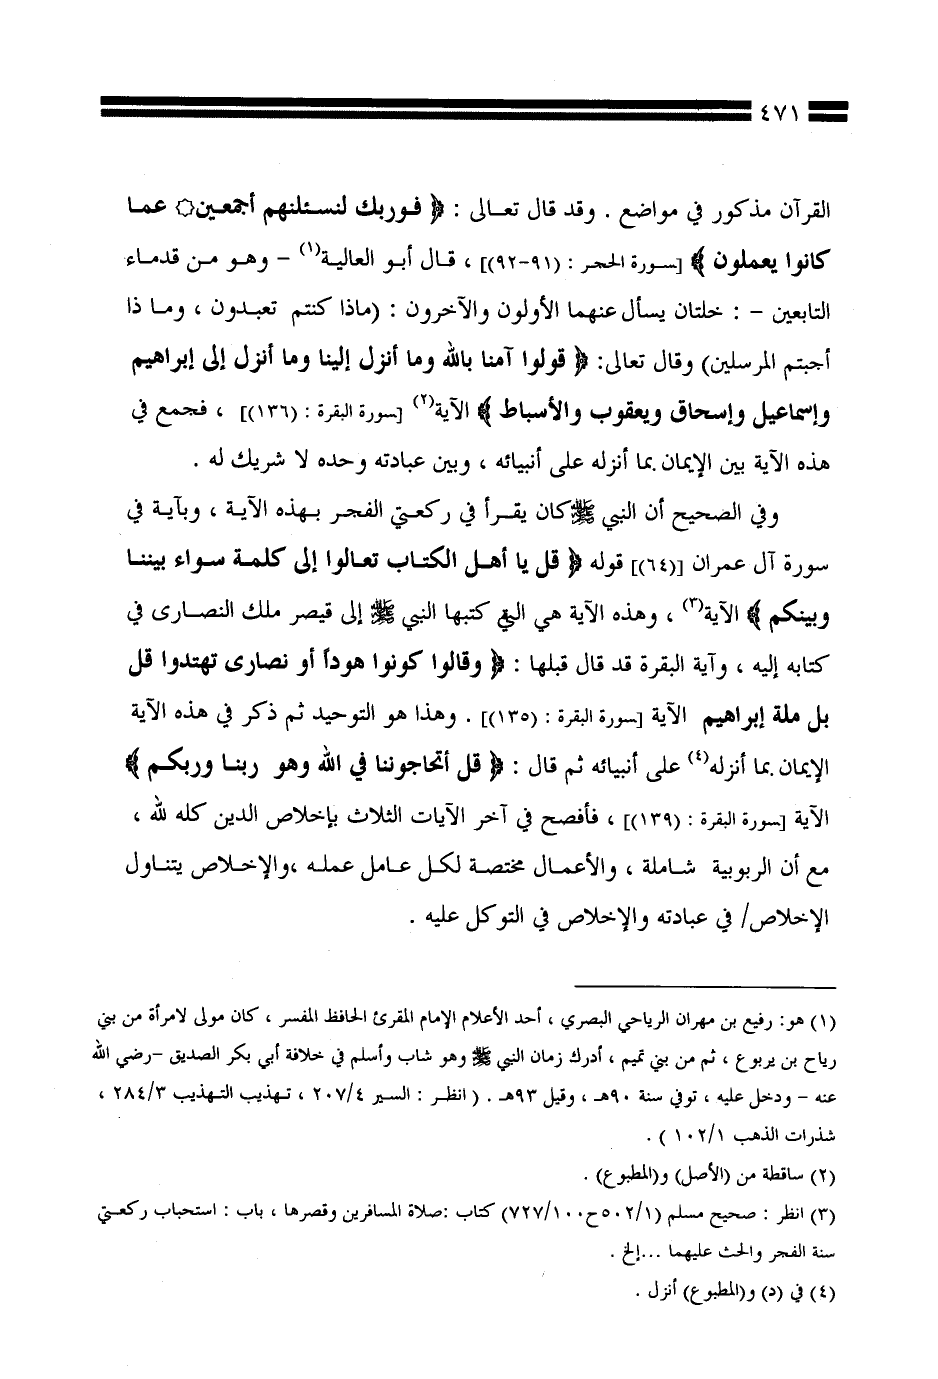 ٤٧١
القرآن مذكور في مواضع . وقد قال تعالى : ﴿ فوربك لنسئلنهم أجمعين۞ عما
كانوا يعملون ﴾ [سورة الحجر : (٩١-٩٢)] ، قال أبو العالية(١) – وهو من قدماء
التابعين – : خلتان يسأل عنهما الأولون والآخرون : (ماذا كنتم تعبدون ، وما ذا
أجبتم المرسلين) وقال تعالى: ﴿ قولوا آمنا بالله وما أنزل إلينا وما أنزل إلى إبراهيم
وإسماعيل وإسحاق ويعقوب والأسباط ﴾ الآية(٢) [سورة البقرة : (١٣٦)] ، فجمع في
هذه الآية بين الإيمان بما أنزله على أنبيائه ، وبين عبادته وحده لا شريك له .
وفي الصحيح أن النبي ﷺ كان يقرأ في ركعتي الفجر بهذه الآية ، وبآية في
سورة آل عمران [(٦٤)] قوله ﴿ قل يا أهل الكتاب تعالوا إلى كلمة سواء بيننا
وبينكم ﴾ الآية(٣) ، وهذه الآية هي التي كتبها النبي ﷺ إلى قيصر ملك النصارى في
كتابه إليه ، وآية البقرة قد قال قبلها : ﴿ وقالوا كونوا هوداً أو نصارى تهتدوا قل
بل ملة إبراهيم الآية [سورة البقرة : (١٣٥)] . وهذا هو التوحيد ثم ذكر في هذه الآية
الإيمان بما أنزله(٤) على أنبيائه ثم قال : ﴿ قل أتحاجوننا في الله وهو ربنا وربكم ﴾
الآية [سورة البقرة : (١٣٩)] ، فأفصح في آخر الآيات الثلاث بإخلاص الدين كله لله ،
مع أن الربوبية شاملة ، والأعمال مختصة لكل عامل عمله ،والإخلاص يتناول
الإخلاص/ في عبادته والإخلاص في التوكل عليه .
(١) هو: رفيع بن مهران الرياحي البصري ، أحد الأعلام الإمام المقرئ الحافظ المفسر ، كان مولى لامرأة من بني
رياح بن يربوع ، ثم من بني تميم ، أدرك زمان النبي ﷺ وهو شاب وأسلم في خلافة أبي بكر الصديق –رضي الله
عنه – ودخل عليه ، توفي سنة ٩٠هـ ، وقيل ٩٣هـ . ( انظر : السير ٢٠٧/٤ ، تهذيب التهذيب ٢٨٤/٣ ،
شذرات الذهب ١٠٢/١ ) .
(٢) ساقطة من (الأصل) و(المطبوع) .
(٣) انظر : صحيح مسلم (٥٠٢/١ح٧٢٧/١٠٠) كتاب :صلاة المسافرين وقصرها ، باب : استحباب ركعتي
سنة الفجر والحث عليهما ...إلخ .
(٤) في (د) و(المطبوع) أنزل .